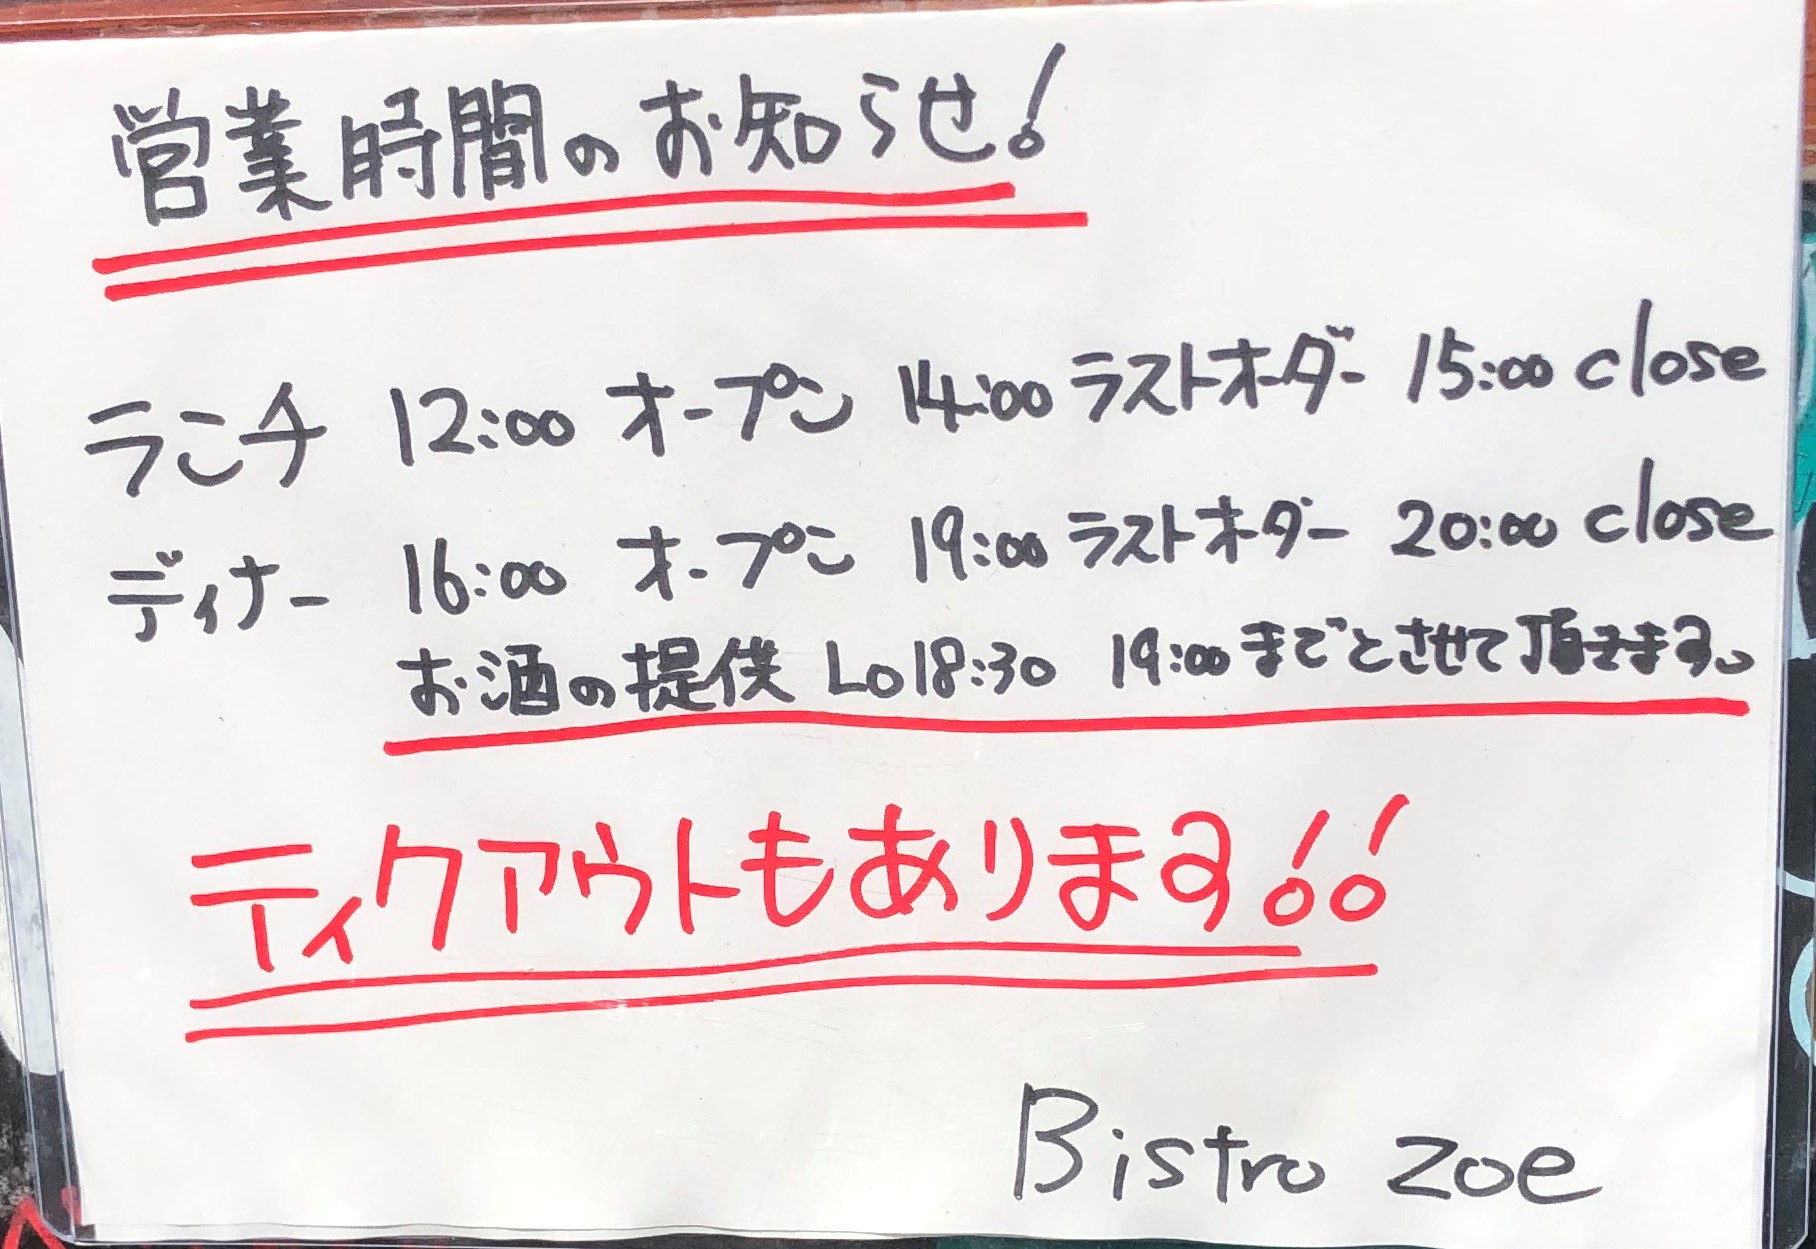 営業時間のお知らせ!
ランチ 12:00 オープン 14:00 ラストオーダー 15:00 close
ディナー 16:00 オープン 19:00 ラストオーダー 20:00 close
お酒の提供 Lo18:30 19:00までとさせて頂きます。
ティクアウトもあります!!
Bistro zoe